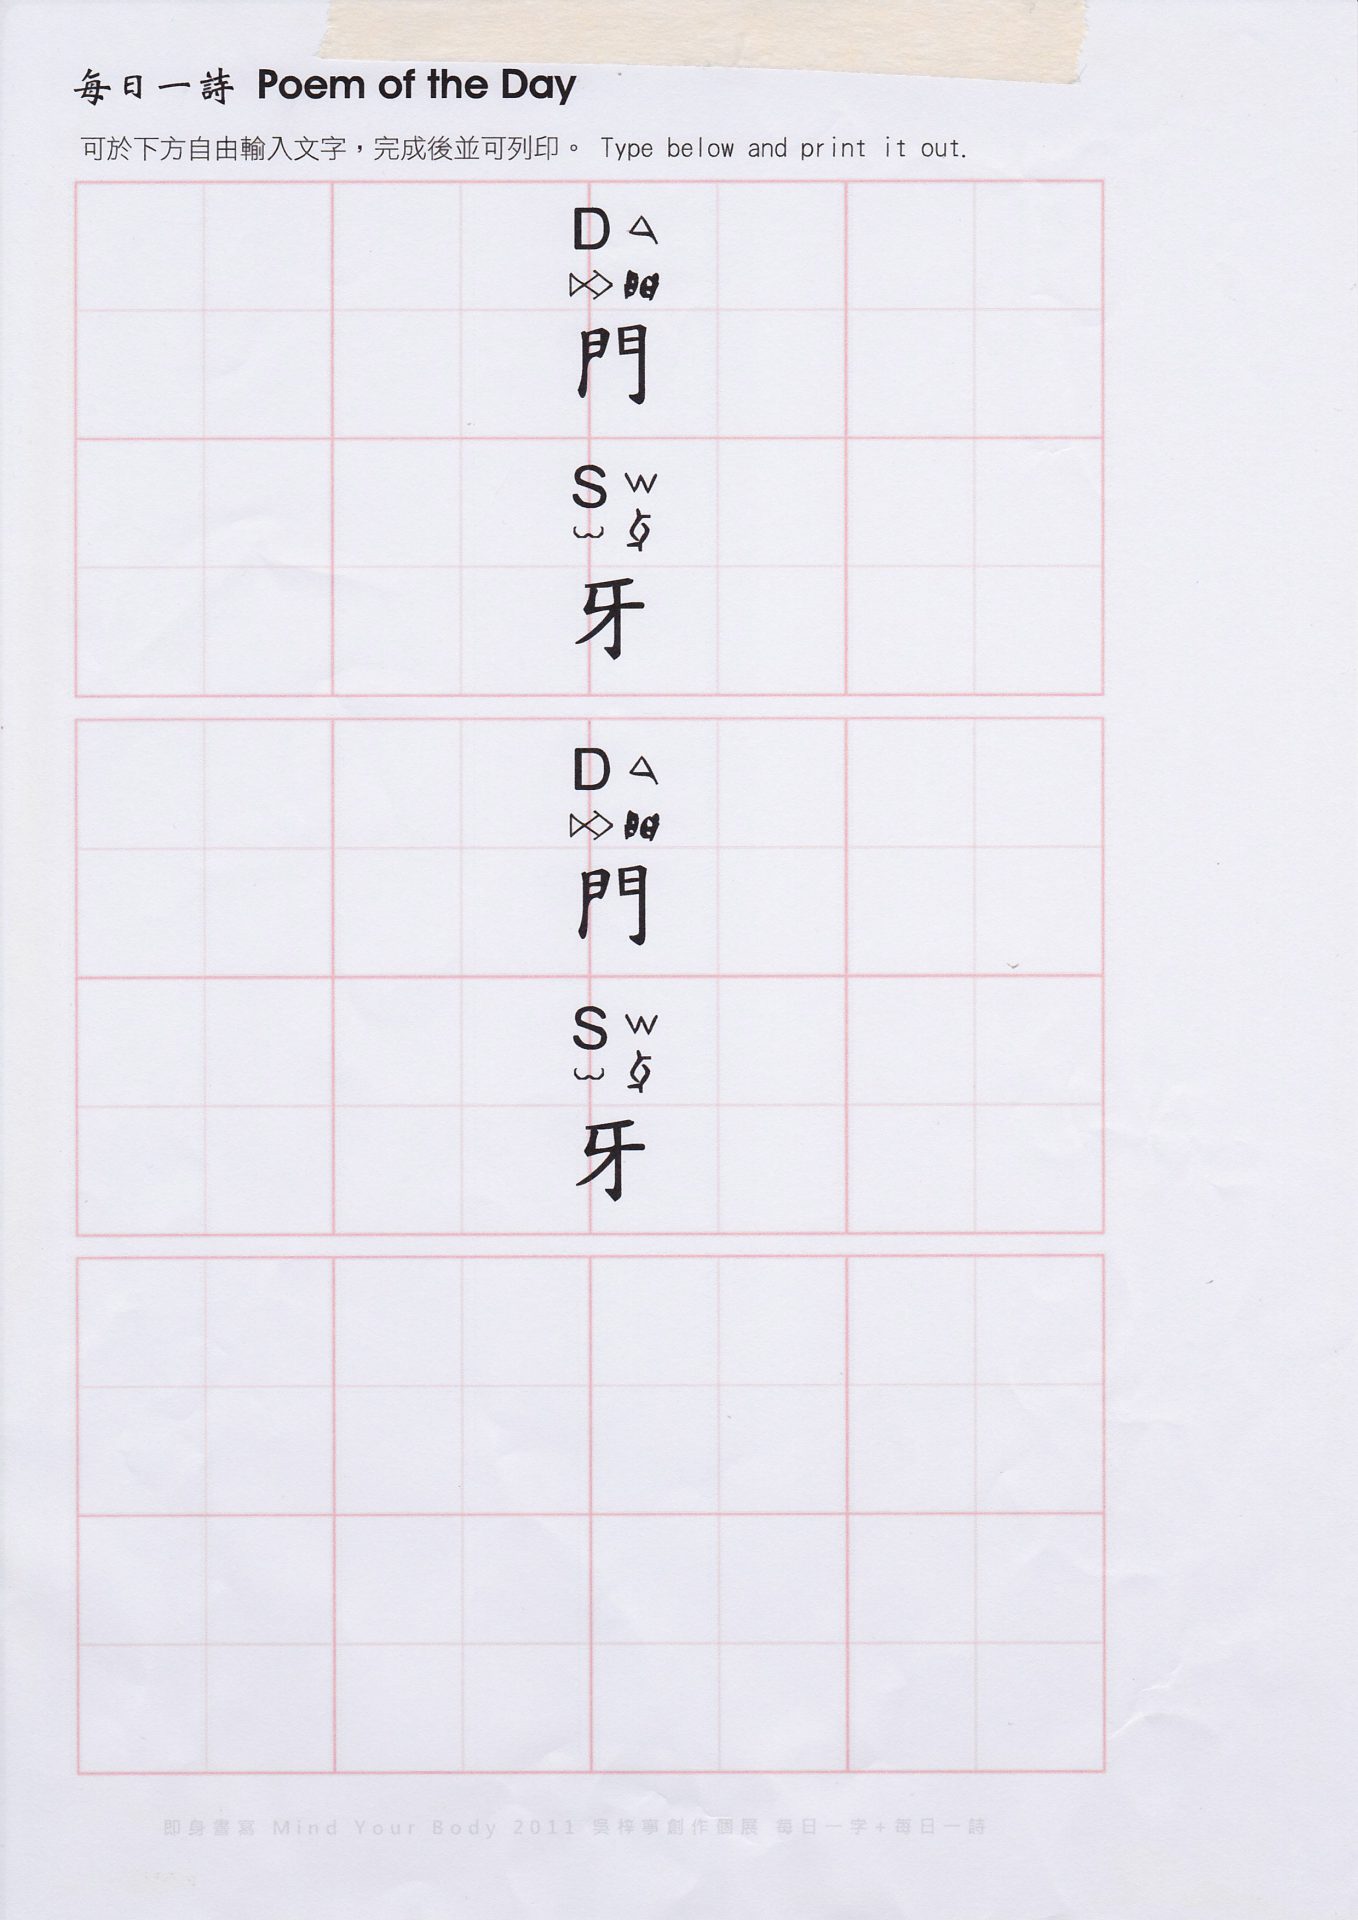 每日一詩 Poem of the Day
可於下方自由輸入文字，完成後並可列印。 Type below and print it out.
D
門
S W
牙
D
門
S W
牙
即身書寫 Mind Your Body 2011 吳梓寧創作個展 每日一字+每日一詩